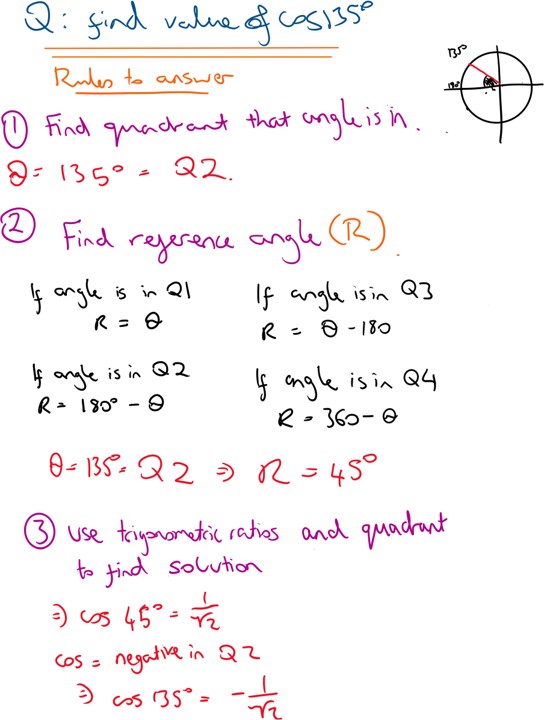 Q: find value of cos135°
Rules to answer
135°
180°
① Find quadrant that angle is in.
θ = 135° = Q2.
② Find reference angle (R).
If angle is in Q1
R = θ
If angle is in Q3
R = θ - 180
If angle is in Q2
R = 180° - θ
If angle is in Q4
R = 360 - θ
θ = 135° = Q2 ⇒ R = 45°
③ use trigonometric ratios and quadrant
to find solution
⇒ cos 45° = 1/√2
cos = negative in Q2
⇒ cos 135° = - 1/√2